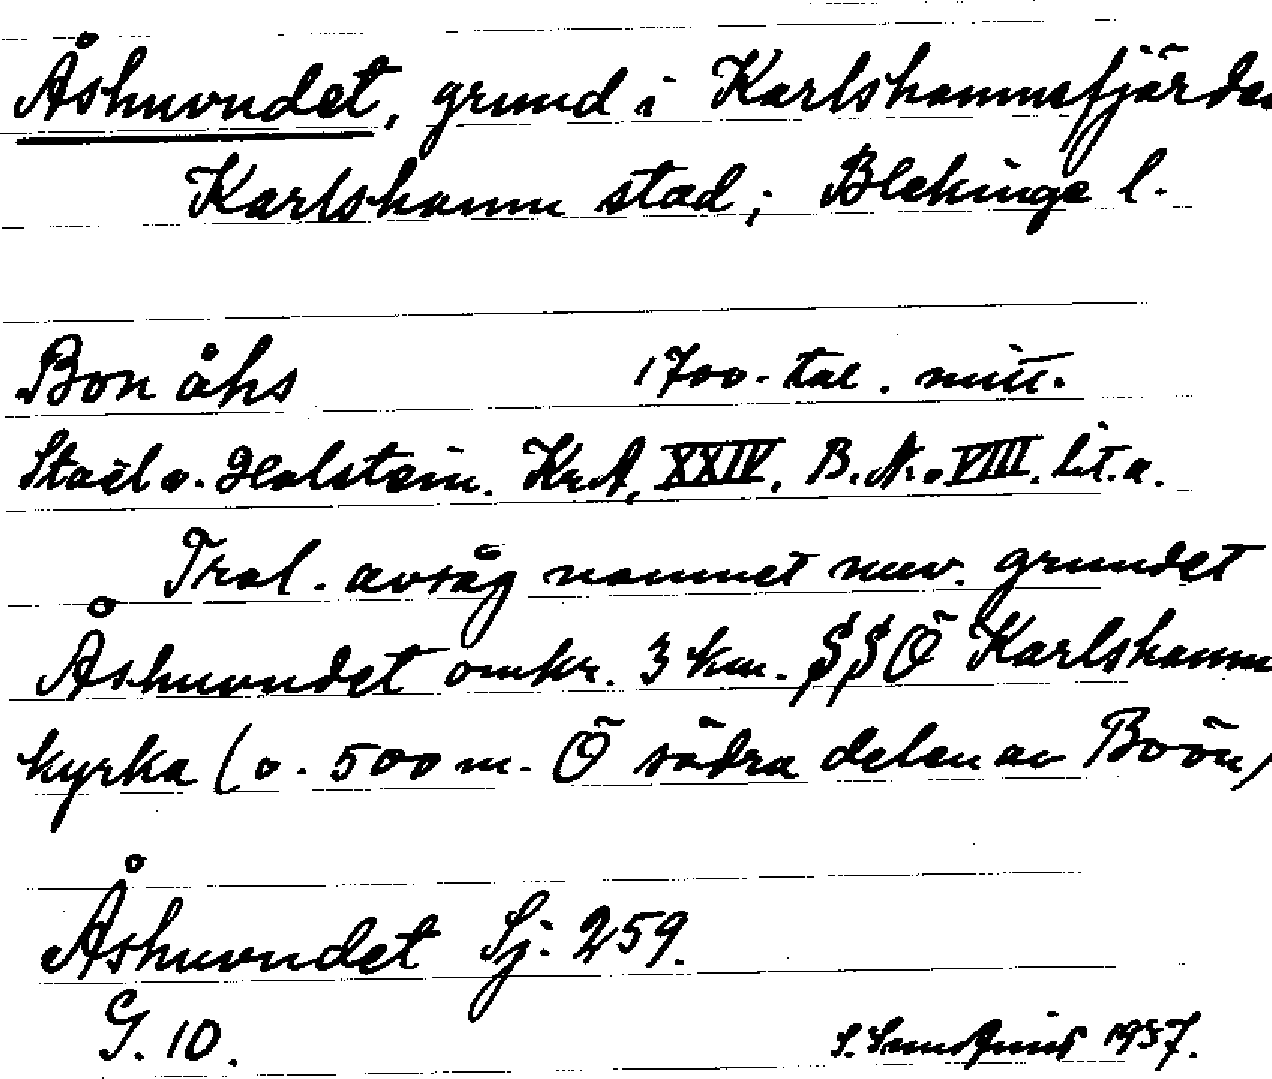 Åshuvudet, grund i Karlshamnsfjärden
Karlshamn stad; Blekinge l.
Bon åhs 1700-tal. mitt.
Stael v. Holstein. KrA, XXIV. B. N:o VIII. lit. a.
Trol. avsåg namnet nuv. grundet
Åshuvudet omkr. 3 km. SSÖ Karlshamn
kyrka (o. 500 m. Ö södra delen av Boön)
Åshuvudet Sj. 259.
G. 10. S. 1937.